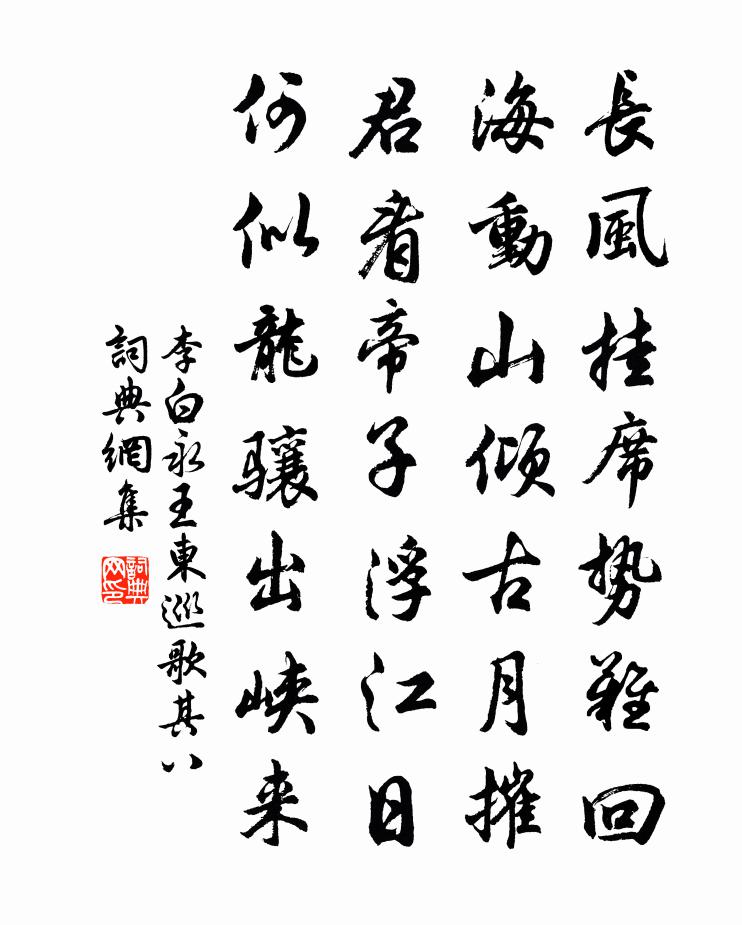 長風挂席势難回
海動山傾古月摧
君看帝子浮江日
何似龍驤出峡来
李白永王東巡歌其八
詞典網集
詞典网印